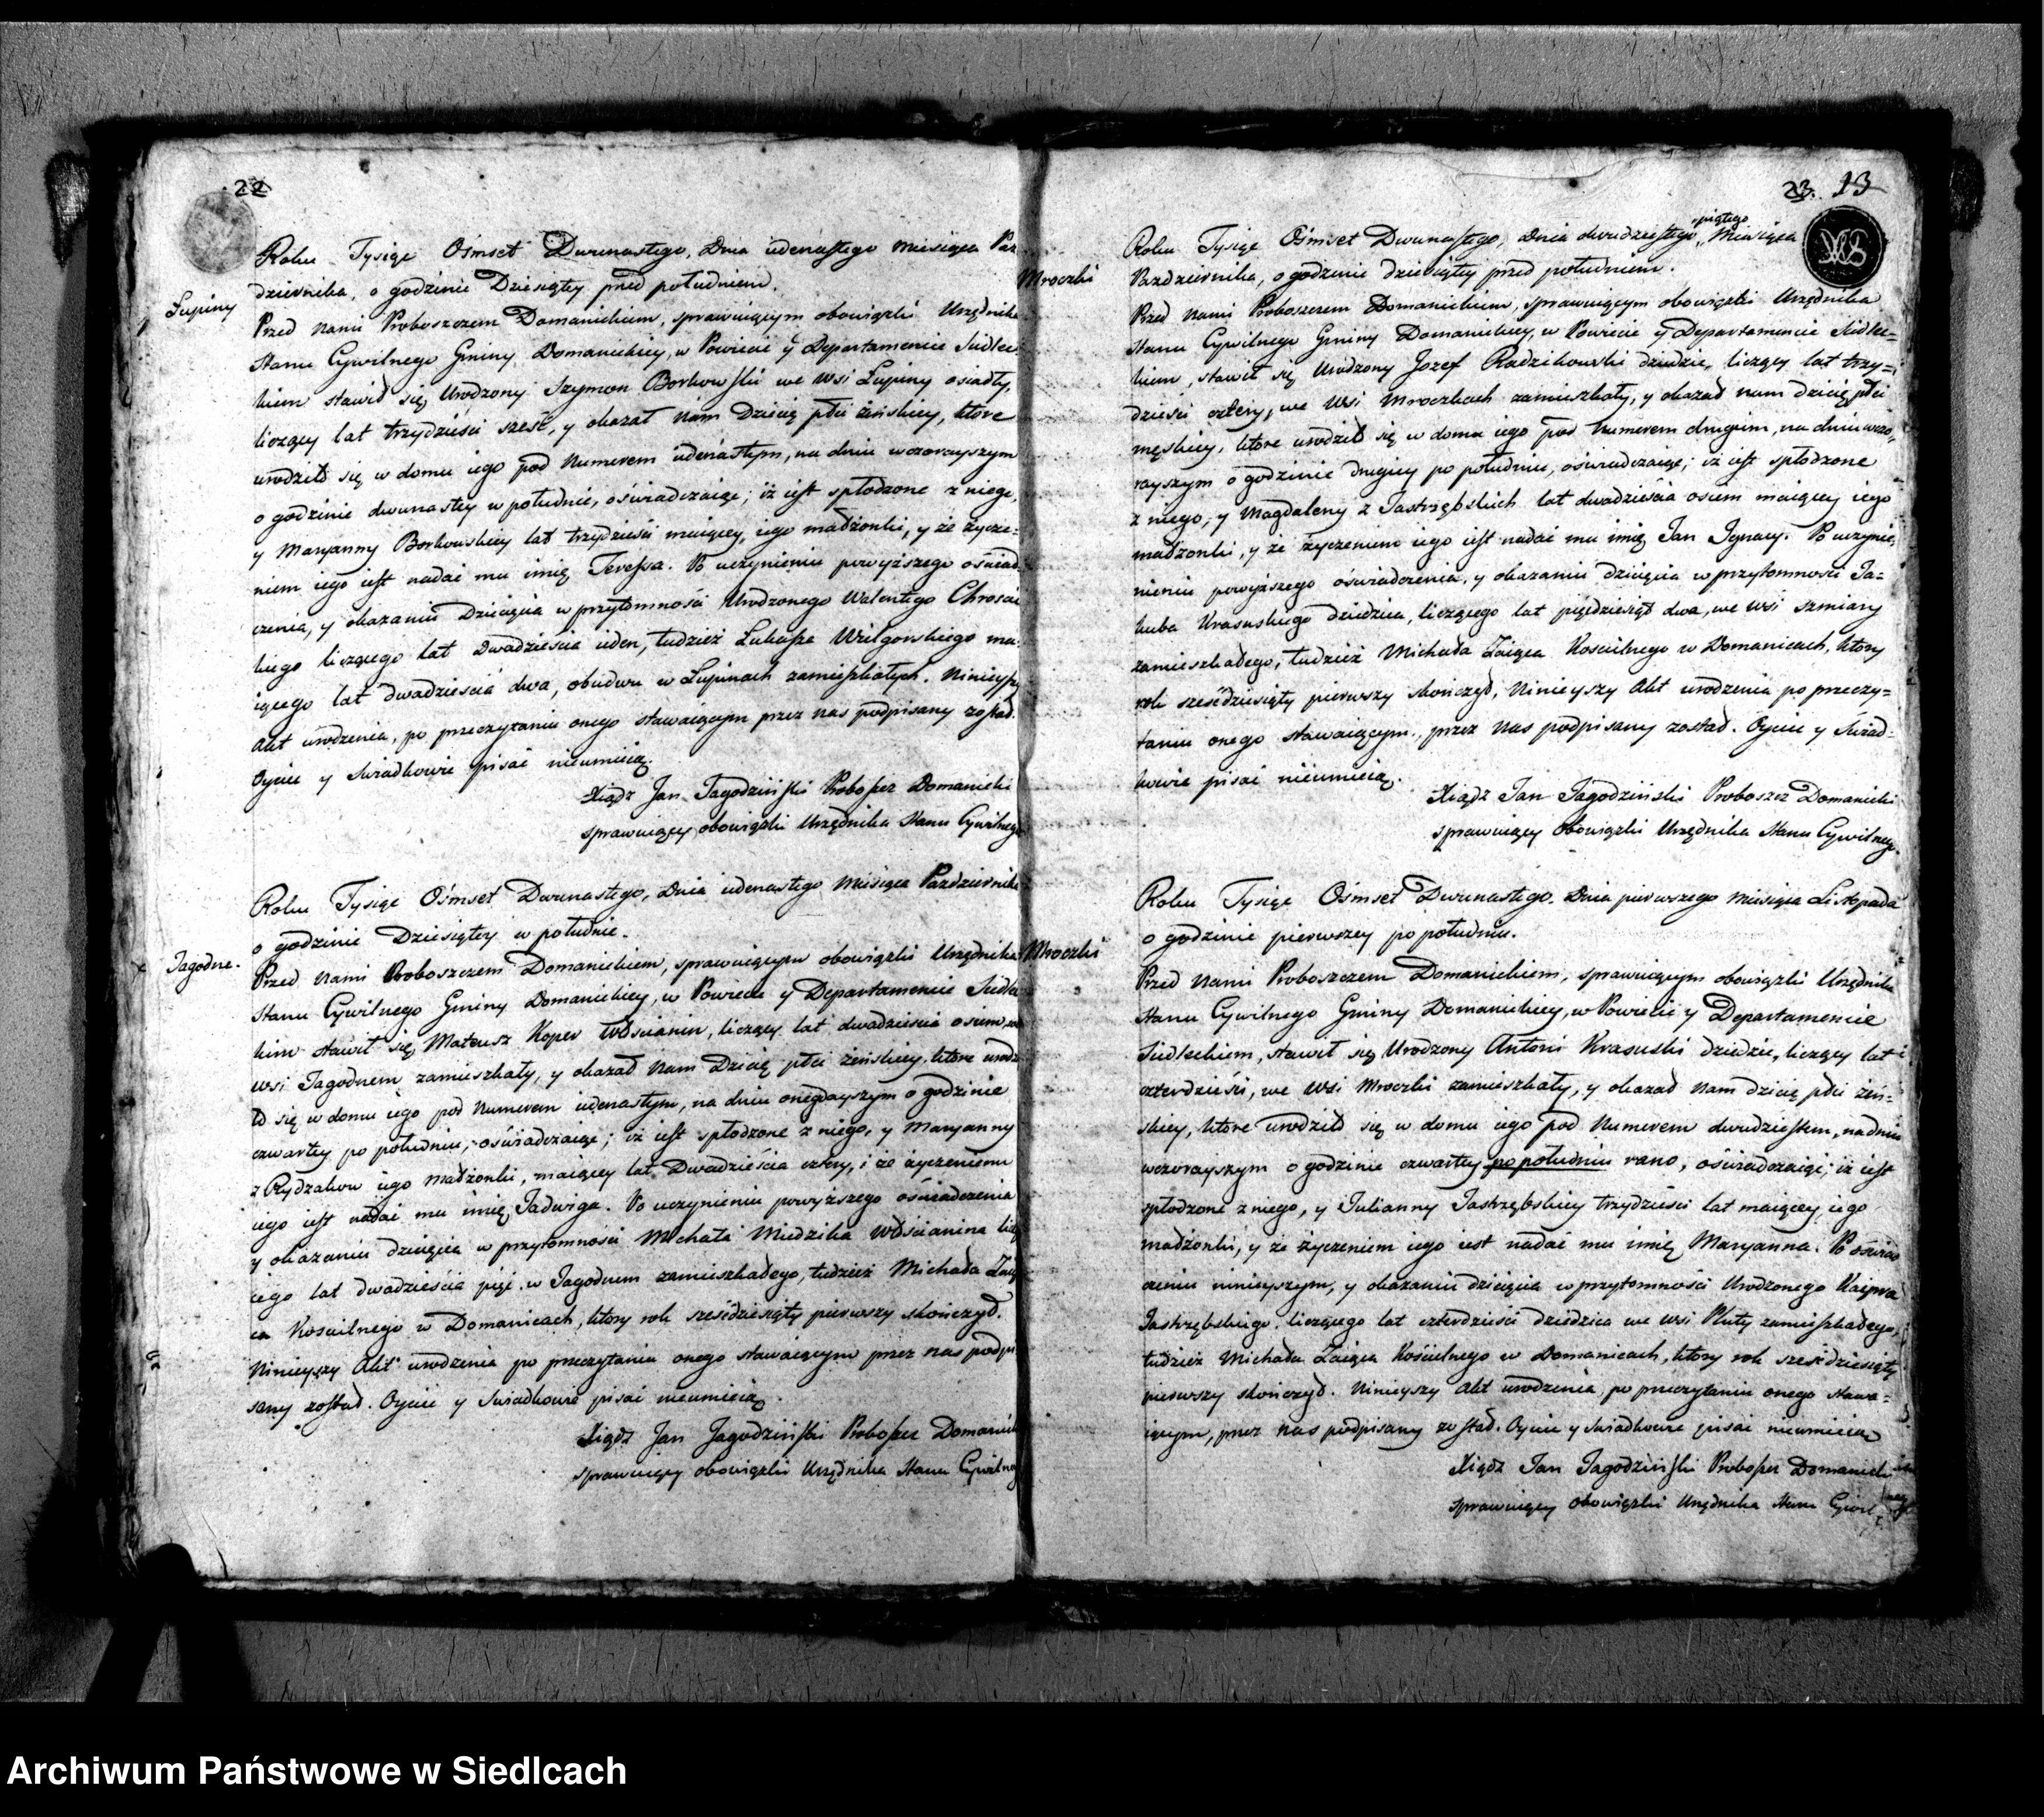 22
Łupiny
Roku Tysiąc Ośmset Dwunastego, Dnia iedenastego Miesiąca Paź-
dziernika, o godzinie Dziesiątey pred południem.
Przed Nami Proboszczem Domanickiem, sprawuiącym obowiązki Urzędnika
Stanu Cywilnego Gminy Domanickiey, w Powiecie y Departamencie Siedlec-
kiem stawił się Urodzony Szymon Borkowski we Wsi Łupiny osiadły,
liczący lat trzydzieści sześć, y okazał Nam Dziecię płci żeńskiey, ktore
urodziło się w domu iego pod Numerem iedenastym, na dniu wczorayszym
o godzinie dwunastey w południe, oświadczaiąc; iż iest spłodzone z niego,
y Maryanny Borkowskiey lat trzydzieści maiącey, iego małżonki, y że życze-
niem iego iest nadać mu imię Teressa. Po uczynieniu powyższego oświad-
czenia, y okazaniu Dziecięcia w przytomności Urodzonego Walentego Chrosci-
kiego liczącego lat Dwadzieścia ieden, tudzież Łukasza Wielgorskiego ma-
iącego lat dwadzieścia dwa, obudwu w Łupinach zamieszkałych. Ninieyszy
Akt urodzenia, po przeczytaniu onego stawaiącym przez nas podpisany został.
Oyciec y Świadkowie pisać nieumieią.
Xiądz Jan Jagodziński Proboszcz Domanicki
sprawuiący obowiązki Urzędnika Stanu Cywilnego
Jagodne.
Roku Tysiąc Ośmset Dwunastego, Dnia iedenastego Miesiąca Pazdziernika
o godzinie Dziesiątey w południe.
Przed Nami Proboszczem Domanickiem, sprawuiącym obowiązki Urzędnika
Stanu Cywilnego Gminy Domanickiey, w Powiecie y Departamencie Siedlec
kim stawił się Mateusz Koper Włościanin, liczący lat dwadzieścia osiem, we
wsi Jagodnem zamieszkały, y okazał Nam Dziecię płci żeńskiey, ktore urodzi
ło się w domu iego pod Numerem iedenastym, na dniu onegdayszym o godzinie
czwartey po południu, oświadczaiąc; iż iest spłodzone z niego, y Maryanny
z Rydzakow iego małżonki, maiącey lat Dwadzieścia cztery, i że życzeniem
iego iest nadać mu imię Jadwiga. Po uczynieniu powyższego oświadczenia
y okazaniu dziecięcia w przytomności Michała Miedzika Włościanina liczą
cego lat dwadzieścia pięć w Jagodnem zamieszkałego, tudzież Michała Zaią
ca Kościelnego w Domanicach, ktory rok sześćdziesiąty pierwszy skończył.
Ninieyszy Akt urodzenia po przeczytaniu onego stawaiącym przez nas podpi
sany został. Oyciec y Świadkowie pisać nieumieią.
Xiądz Jan Jagodziński Proboszcz Domanicki
sprawuiący obowiązki Urzędnika Stanu Cywilneg
23. 13
Mroczki
piątego
Roku Tysiąc Ośmset Dwunastego, Dnia dwudziestego Miesiąca
Pazdziernika, o godzinie dziesiątey przed południem.
Przed Nami Proboszczem Domanickiem, sprawuiącym obowiązki Urzędnika
Stanu Cywilnego Gminy Domanickiey, w Powiecie y Departamencie Siedlec-
kiem, stawił się Urodzony Jozef Radzikowski dziedzic, liczący lat trzy-
dzieści cztery, we Wsi Mroczkach zamieszkały, y okazał nam dziecię płci
męskiey, ktore urodziło się w domu iego pod Numerem drugim, na dniu wczo-
rayszym o godzinie drugiey po południu, oświadczaiąc; iż iest spłodzone
z niego, y Magdaleny z Jastrzębskich lat dwadzieścia osiem maiącey iego
małżonki, y że życzeniem iego iest nadać mu imię Jan Ignacy. Po uczynie-
nieniu powyższego oświadczenia, y okazaniu dziecięcia w przytomności Ja-
kuba Krasuskiego dziedzica, liczącego lat pięćdziesiąt dwa, we Wsi Szmiary
zamieszkałego, tudzież Michała Zaiąca Kościelnego w Domanicach, ktory
rok sześćdziesiąty pierwszy skończył, Ninieyszy Akt urodzenia po przeczy-
taniu onego stawaiącym, przez nas podpisany został. Oyciec y Świad-
kowie pisać nieumieią.
Xiądz Jan Jagodziński Proboszcz Domanicki
sprawuiący obowiązki Urzędnika Stanu Cywilnego.
Mroczki
Roku Tysiąc Ośmset Dwunastego. Dnia pierwszego Miesiąca Listopada
o godzinie pierwszey po południu.
Przed Nami Proboszczem Domanickiem, sprawuiącym obowiązki Urzędnika
Stanu Cywilnego Gminy Domanickiey, w Powiecie y Departamencie
Siedleckiem, stawił się Urodzony Antoni Krasuski dziedzic, liczący lat
czterdzieści, we Wsi Mroczki zamieszkały, y okazał Nam dziecię płci żeń-
skiey, ktore urodziło się w domu iego pod Numerem dwudziestem, na dniu
wczorayszym o godzinie czwartey po południu rano, oświadczaiąc; iż iest
spłodzone z niego, y Julianny Jastrzębskiey trzydzieści lat maiącey iego
małżonki, y że życzeniem iego iest nadać mu imię Maryanna. Po oświad
czeniu ninieyszym, y okazaniu dziecięcia w przytomności Urodzonego Kacpra
Jastrzębskiego, liczącego lat czterdzieści dziedzica we wsi Pluty zamieszkałego,
tudzież Michała Zaiąca Kościelnego w Domanicach, ktory rok sześćdziesiąty
pierwszy skończył. Ninieyszy Akt urodzenia, po przeczytaniu onego stawa-
iącym, przez nas podpisany został. Oyciec y Świadkowie pisać nieumieią
Xiądz Jan Jagodziński Proboszcz Domanicki
sprawuiący obowiązki Urzędnika Stanu Cywil
Archiwum Państwowe w Siedlcach